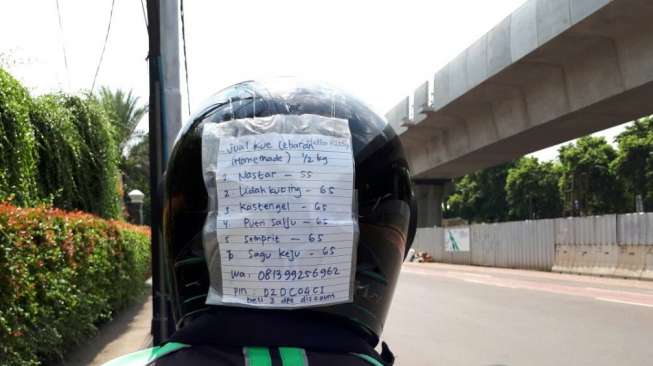 Jual kue lebaran
(Homemade) 1/2 kg
1. Nastar – 55
2. Lidah kucing – 65
3. Kastengel – 65
4. Putri Salju – 65
5. Semprit – 65
6. Sagu keju – 65
Wa: 081399256962
Pin: D2DC04C1
beli 3 dpt discount